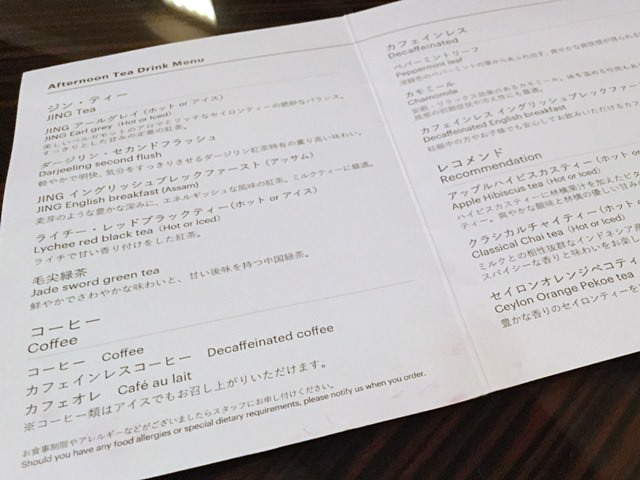 Afternoon Tea Drink Menu
ジン・ティー
JING Tea
JING アールグレイ(ホット or アイス)
JING Earl grey (Hot or Iced)
美しいベルガモットのアロマとリッチなセイロンティーの絶妙なバランス。
すっきりとした甘みの定番の紅茶。
ダージリン・セカンドフラッシュ
Darjeeling second flush
軽やかで明快、気分をすっきりさせるダージリン紅茶特有の薫り高い味わい。
JING イングリッシュブレックファースト(アッサム)
JING English breakfast (Assam)
麦芽のような豊かな深みに、エネルギッシュな風味の紅茶。ミルクティーに最適。
ライチー・レッドブラックティー(ホット or アイス)
Lychee red black tea (Hot or Iced)
ライチで甘い香り付けをした紅茶。
毛尖緑茶
Jade sword green tea
鮮やかでさわやかな味わいと、甘い後味を持つ中国緑茶。
コーヒー
Coffee
コーヒー Coffee
カフェインレスコーヒー Decaffeinated coffee
カフェオレ Café au lait
※コーヒー類はアイスでもお召し上がりいただけます。
お食事制限やアレルギーなどがございましたらスタッフにお申し付けください。
Should you have any food allergies or special dietary requirements, please notify us when you order.
カフェインレス
Decaffeinated
ペパーミントリーフ
Peppermint leaf
深緑色のペパーミントの葉からあふれ出す、爽やかな爽快感が得られる
カモミール
Chamomile
安眠・リラックス効果のあるカモミール。体を温める作用もあ
風邪の初期症状や冷え性にも最適。
カフェインレス イングリッシュブレックファ
Decaffeinated English breakfast
妊娠中の方やお子様でも安心してお飲みいただけるカフ
レコメンド
Recommendation
アップルハイビスカスティー(ホット or
Apple Hibiscus tea (Hot or Iced)
ハイビスカスティーに林檎果汁を加えたビタ
ティー。爽やかな酸味と林檎の優しい甘み
クラシカルチャイティー(ホット o
Classical Chai tea (Hot or Iced)
ミルクとの相性抜群なインドネシア産
スパイシーな香りと味わいをお楽し
セイロンオレンジペコティ
Ceylon Orange Pekoe tea
豊かな香りのセイロンティーを